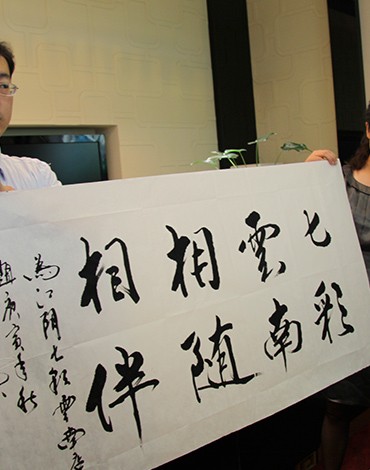 七彩
雲南
相随
相伴
為江阴七彩雲南店
題庚寅年秋